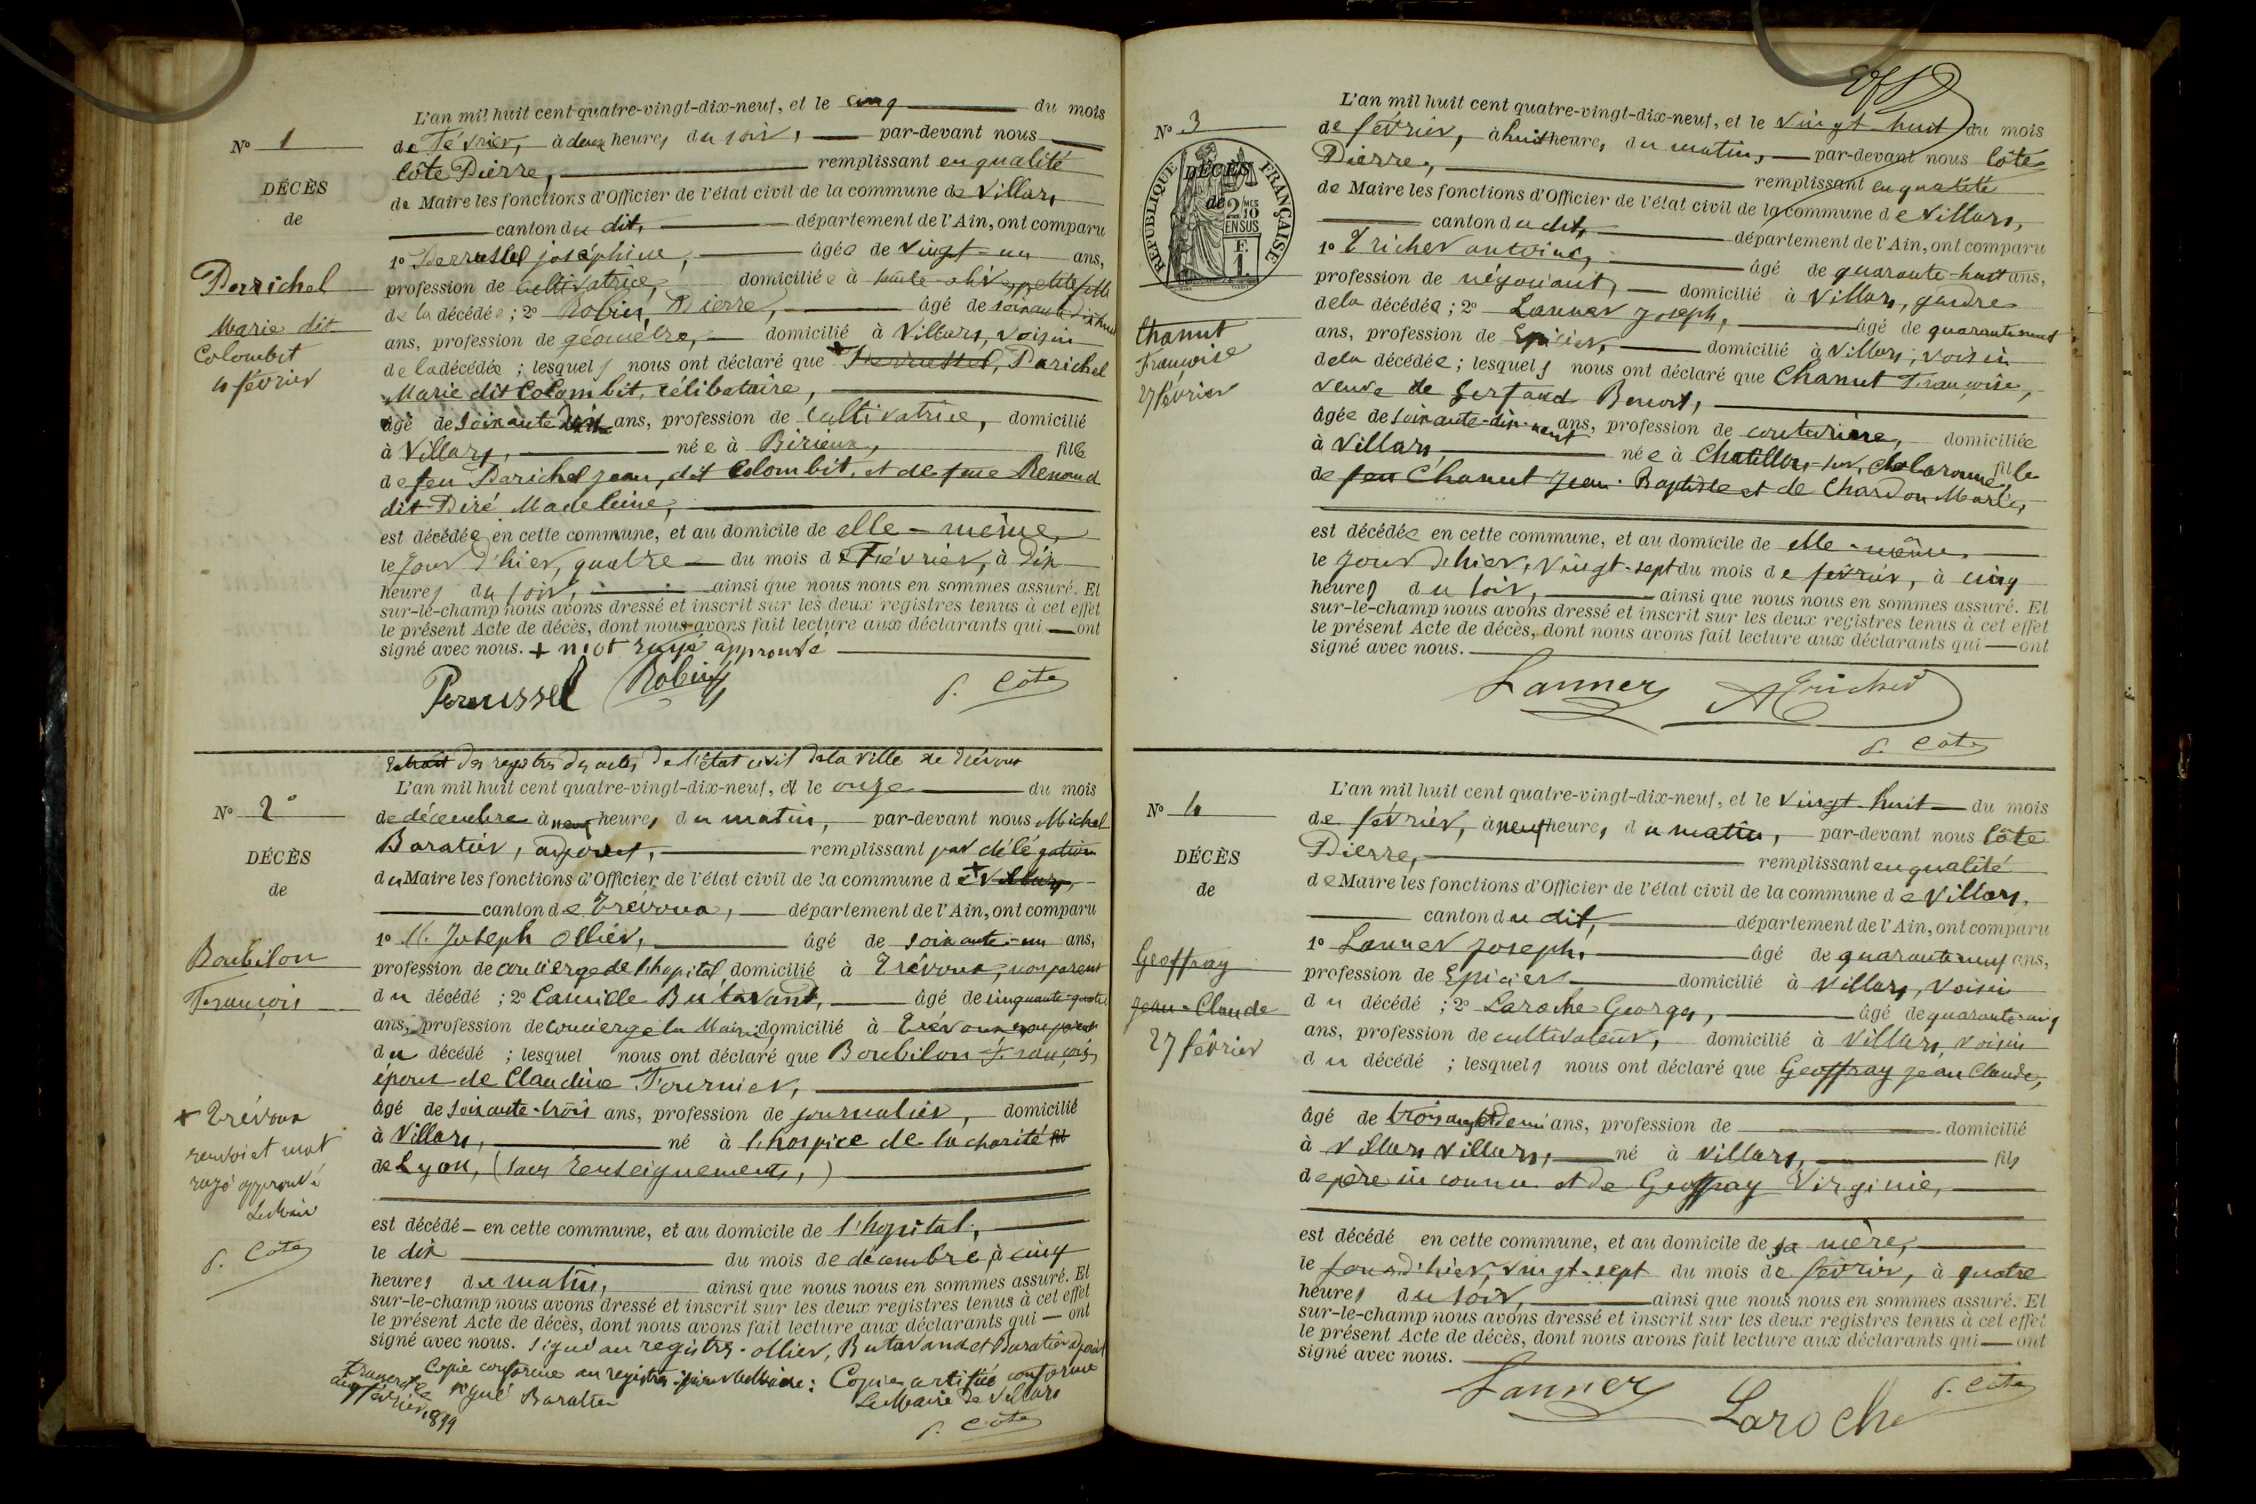 N° 1
DÉCÈS
de
Perrichel
Marie dit
Colombit
4 février
L'an mil huit cent quatre-vingt-dix-neuf, et le cinq du mois
de Février, à deux heures du soir, par-devant nous
Côte Pierre, remplissant en qualité
de Maire les fonctions d'Officier de l'état civil de la commune de Villars
canton du dit, département de l'Ain, ont comparu
1° Perrussel joséphine, âgée de vingt-un ans,
profession de cultivatrice, domiciliée à petite fille
de la décédée; 2° Robin, Pierre, âgé de soixante dix huit
ans, profession de géomètre, domicilié à Villars, voisin
de la décédée; lesquels nous ont déclaré que Perrussel, Parichel
Marie dit Colombit, célibataire,
âgé de soixante dix ans, profession de cultivatrice, domicilié
à Villars, née à Birieux, fille
de feu Parichel jean, dit Colombit, et de feue Renaud
dit Diré Madeleine,
est décédée en cette commune, et au domicile de elle-même
le jour d'hier, quatre du mois de Février, à dix
heures du soir, ainsi que nous nous en sommes assuré. Et
sur-le-champ nous avons dressé et inscrit sur les deux registres tenus à cet effet
le présent Acte de décès, dont nous avons fait lecture aux déclarants qui ont
signé avec nous. + mot rayé approuvé
Perrussel Robin P. Côte
N° 2°
DÉCÈS
de
Boubilon
François
+ Trévoux
renvoi et mot
rayé approuvé
Le Maire
P. Côte
Extrait des registres des actes de l'état civil de la ville de Trévoux
L'an mil huit cent quatre-vingt-dix-neuf, et le onze du mois
de décembre à neuf heures du matin, par-devant nous Michel
Baratier, adjoint, remplissant par délégation
du Maire les fonctions d'Officier de l'état civil de la commune de + Villars,
canton de Trévoux, département de l'Ain, ont comparu
1° M. Joseph Ollier, âgé de soixante-un ans,
profession de concierge de l'hopital domicilié à Trévoux, non parent
du décédé; 2° Camille Butavant, âgé de cinquante-quatre
ans, profession de concierge la Mairie, domicilié à Trévoux non parent
du décédé; lesquel nous ont déclaré que Boubilon François,
époux de Claudine Fournier,
âgé de soixante-trois ans, profession de journalier, domicilié
à Villars, né à l'hospice de la charité fil
de Lyon, (sans renseignements,)
est décédé en cette commune, et au domicile de l'hopital,
le dix du mois de décembre, à cinq
heures du matin, ainsi que nous nous en sommes assuré. Et
sur-le-champ nous avons dressé et inscrit sur les deux registres tenus à cet effet
le présent Acte de décès, dont nous avons fait lecture aux déclarants qui ont
signé avec nous. signé au registre. Ollier, Butavand et Baratier adjoint
Copie conforme au registre : Copie certifiée conforme
signé Baratier Le Maire de Villars
février 1899 P. Côte
N° 3
RÉPUBLIQUE FRANÇAISE
DÉCÈS
de
2/10 MES
EN SUS
F. 1.
Chanut
Françoise
27 février
L'an mil huit cent quatre-vingt-dix-neuf, et le vingt-huit du mois
de février, à huit heures du matin, par-devant nous Côte
Pierre, remplissant en qualité
de Maire les fonctions d'Officier de l'état civil de la commune de Villars,
canton du dit, département de l'Ain, ont comparu
1° Tricher antoine, âgé de quarante-huit ans,
profession de négociant, domicilié à Villars, gendre
de la décédée; 2° Lanner Joseph, âgé de quarante neuf
ans, profession de Epicier, domicilié à Villars, voisin
de la décédée; lesquels nous ont déclaré que Chanut Françoise,
veuve de Gerfaud Benoit,
âgée de soixante-dix-neuf ans, profession de couturière, domiciliée
à Villars, née à Chatillon-sur-Chalaronne, fille
de feu Chanut Jean-Baptiste et de Chardon Marie,
est décédée en cette commune, et au domicile de elle-même.
le jour d'hier, vingt-sept du mois de février, à cinq
heures du soir, ainsi que nous nous en sommes assuré. Et
sur-le-champ nous avons dressé et inscrit sur les deux registres tenus à cet effet
le présent Acte de décès, dont nous avons fait lecture aux déclarants qui ont
signé avec nous.
Lanner A Tricher
P. Côte
N° 4
DÉCÈS
de
Geoffray
Jean-Claude
27 février
L'an mil huit cent quatre-vingt-dix-neuf, et le vingt-huit du mois
de février, à neuf heures du matin, par-devant nous Côte
Pierre, remplissant en qualité
de Maire les fonctions d'Officier de l'état civil de la commune de Villars,
canton du dit, département de l'Ain, ont comparu
1° Lanner Joseph, âgé de quarante neuf ans,
profession de Epicier domicilié à Villars, voisin
du décédé; 2° Laroche Georges, âgé de quarante-cinq
ans, profession de cultivateur, domicilié à Villars, voisin
du décédé; lesquels nous ont déclaré que Geoffray jean Claude,
âgé de trois ans et demi ans, profession de domicilié
à Villars Villars, né à Villars, fils
de père inconnu et de Geoffray Virginie,
est décédé en cette commune, et au domicile de sa mère,
le jour d'hier, vingt-sept du mois de février, à quatre
heures du soir, ainsi que nous nous en sommes assuré. Et
sur-le-champ nous avons dressé et inscrit sur les deux registres tenus à cet effet
le présent Acte de décès, dont nous avons fait lecture aux déclarants qui ont
signé avec nous.
Lanner Laroche P. Côte